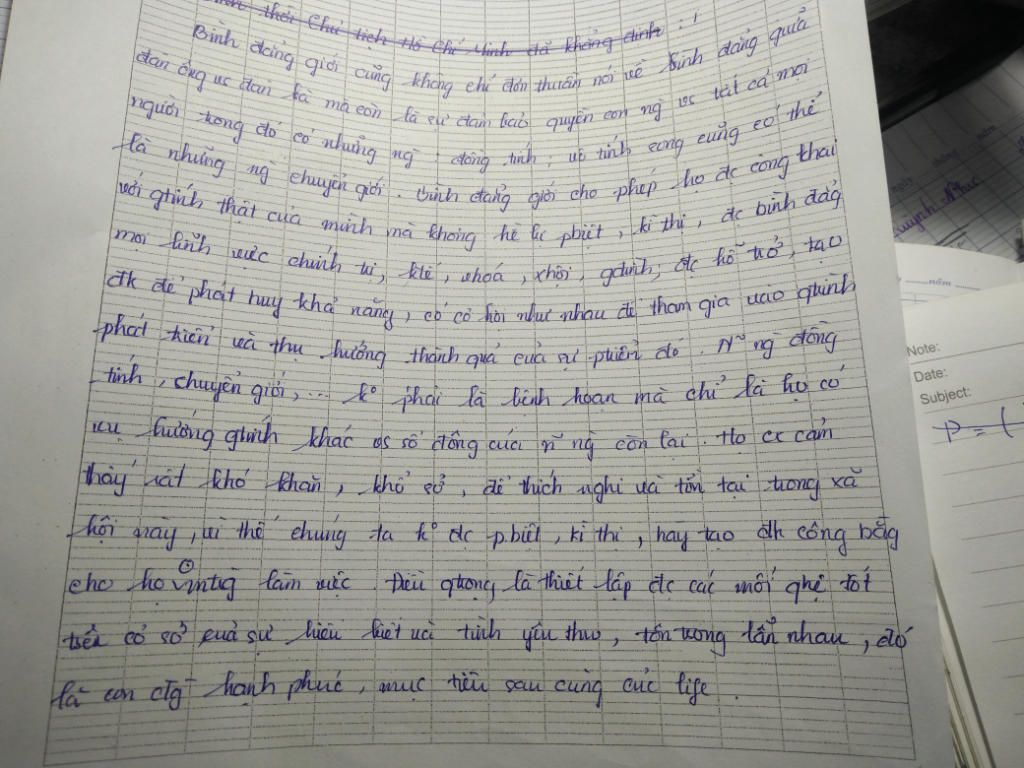 thời Chủ tịch Hồ Chí Minh đã khẳng định :
Bình đẳng giới cũng không chỉ đơn thuần nói về bình đẳng quả
đàn ông vs đàn bà mà còn là sự đảm bảo quyền con ng vs tất cả mọi
người trong đó có những ng đồng tính, vô tính cong cũng có thể
là những ng chuyển giới. Bình đẳng giới cho phép họ đc công khai
với gtính thật của mình mà không hề bị pbiệt, kì thị, đc bình đẳg
mọi lĩnh vực chính trị, ktế, vhoá, xhội, gđình; đc hỗ trợ, tạo
đk để phát huy khả năng, có cơ hội như nhau để tham gia vào qtrình
phát triển và thụ hưởng thành quả của sự ptriển đó. N~ ng đồng
tính, chuyển giới,... ko phải là bệnh hoạn mà chỉ là họ có
xu hướng gtính khác vs số đông của n~ ng còn lại. Họ cx cảm
thấy rất khó khăn, khổ sở, để thích nghi và tồn tại trong xã
hội này, vì thế chúng ta ko đc p.biệt, kì thị, hãy tạo đk công bằg
cho họ trong làm việc. Điều qtrọng là thiết lập đc các mối qhệ tốt
trên cơ sở của sự hiểu biết và tình yêu thw, tôn trọng lẫn nhau, đó
là con đg hạnh phúc, mục tiêu sau cùng của life.
năm
Note:
Date:
Subject:
P = (